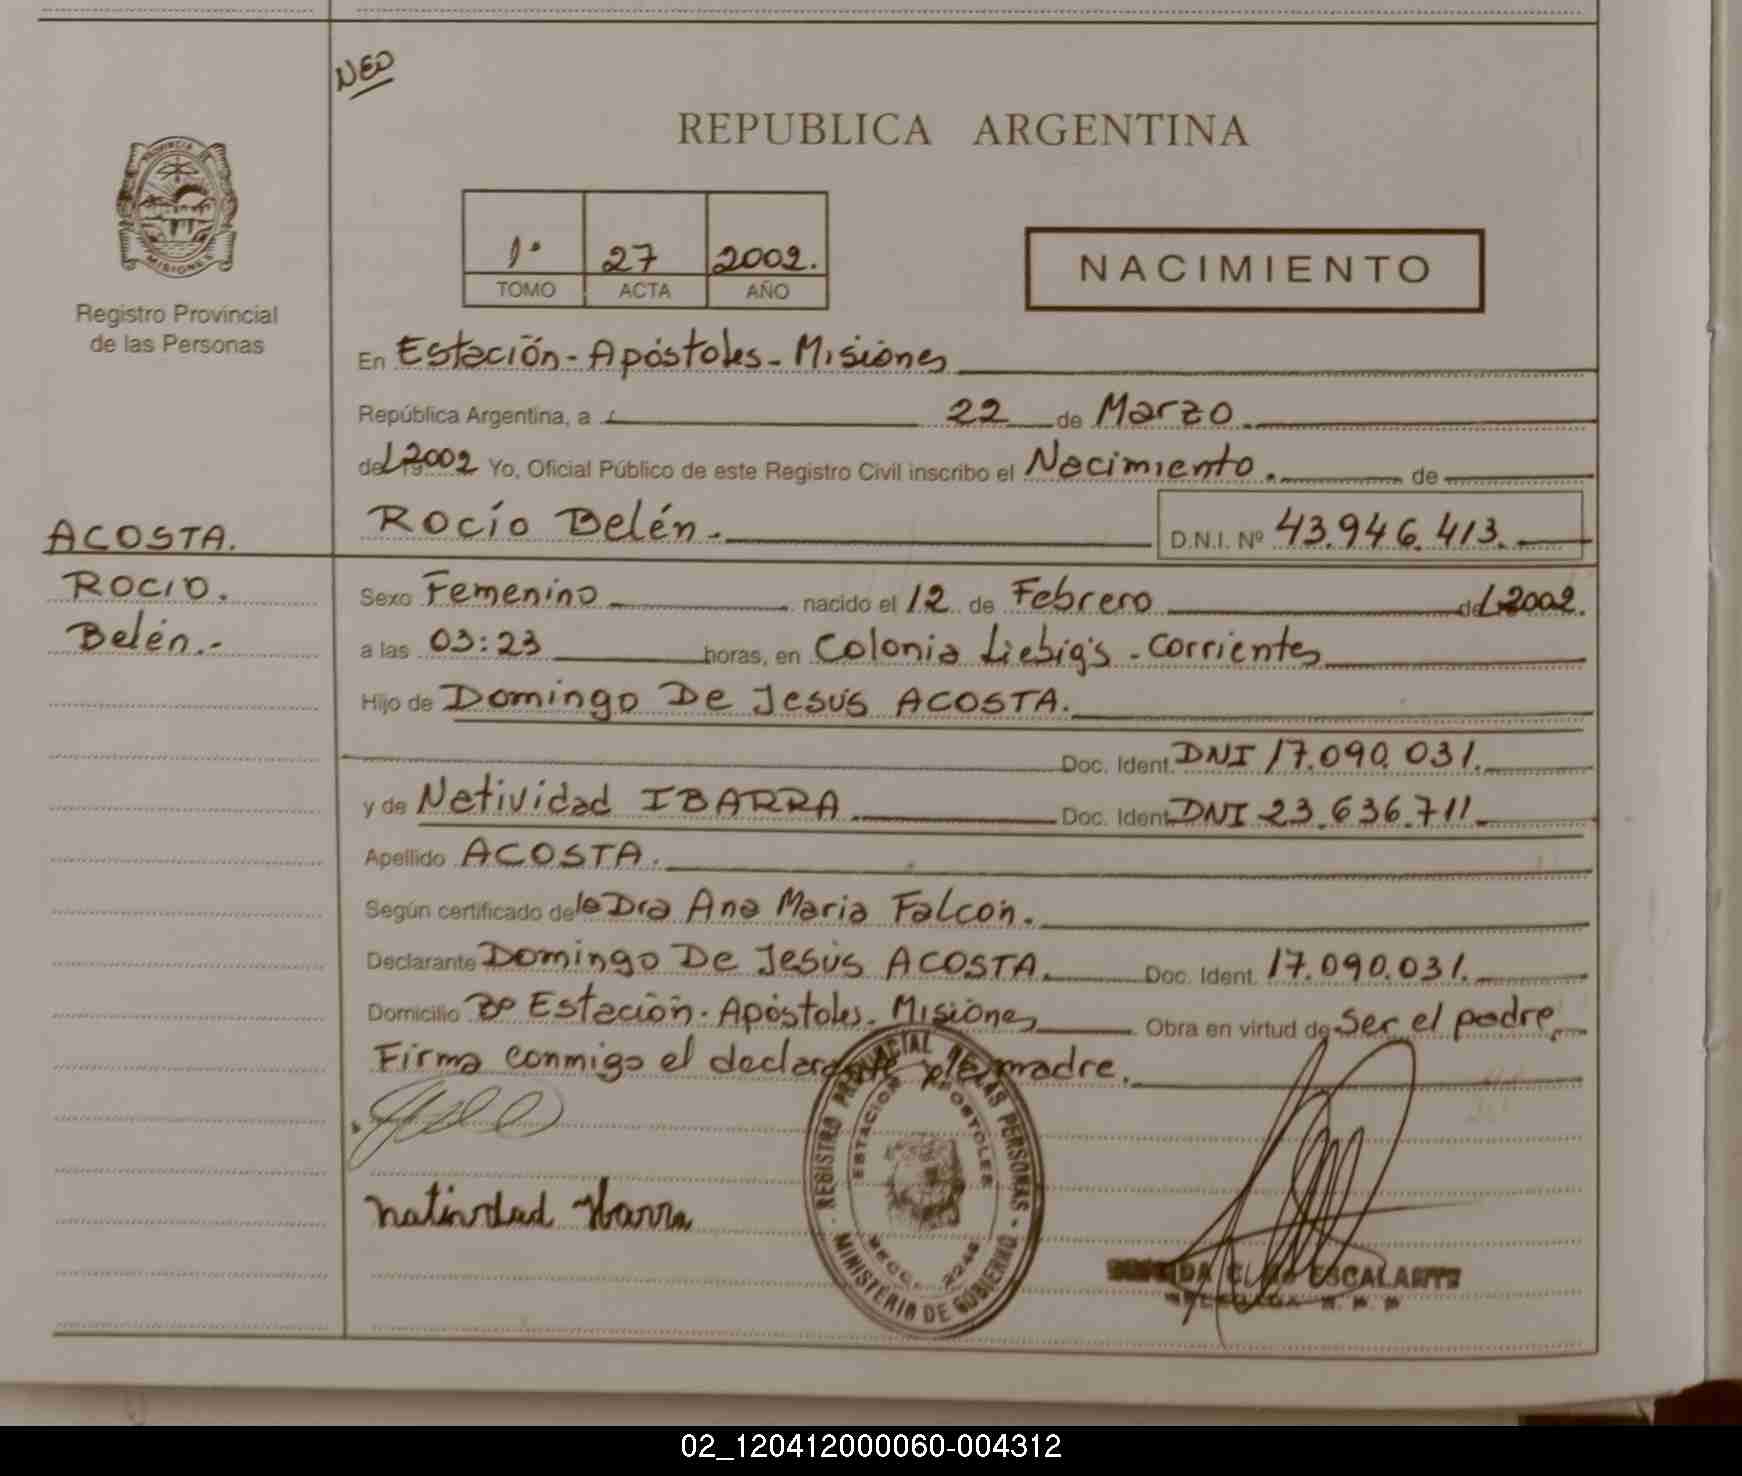 NEO
REPUBLICA ARGENTINA
PROVINCIA DE
MISIONES
Registro Provincial
de las Personas
1º 27 2002.
TOMO ACTA AÑO
NACIMIENTO
En Estación - Apóstoles - Misiones
República Argentina, a 22 de Marzo
del 2002 Yo, Oficial Público de este Registro Civil inscribo el Nacimiento. de
ACOSTA.
Rocío Belén. D.N.I. Nº 43.946.413.
ROCIO.
Belén.-
Sexo Femenino nacido el 12 de Febrero del 2002.
a las 03:23 horas, en Colonia Liebig's - Corrientes
Hijo de Domingo De Jesús ACOSTA.
Doc. Ident. DNI 17.090.031.
y de Natividad IBARRA Doc. Ident. DNI 23.636.711.
Apellido ACOSTA.
Según certificado de la Dra Ana Maria Falcón.
Declarante Domingo De Jesús ACOSTA. Doc. Ident. 17.090.031.
Domicilio Bº Estación - Apóstoles - Misiones Obra en virtud de Ser el padre.
Firma conmigo el declarante y la madre.
REGISTRO PROVINCIAL DE LAS PERSONAS
ESTACION APOSTOLES
SECC. 2246
MINISTERIO DE GOBIERNO
Natividad Ibarra
ESCALANTE
02_120412000060-004312